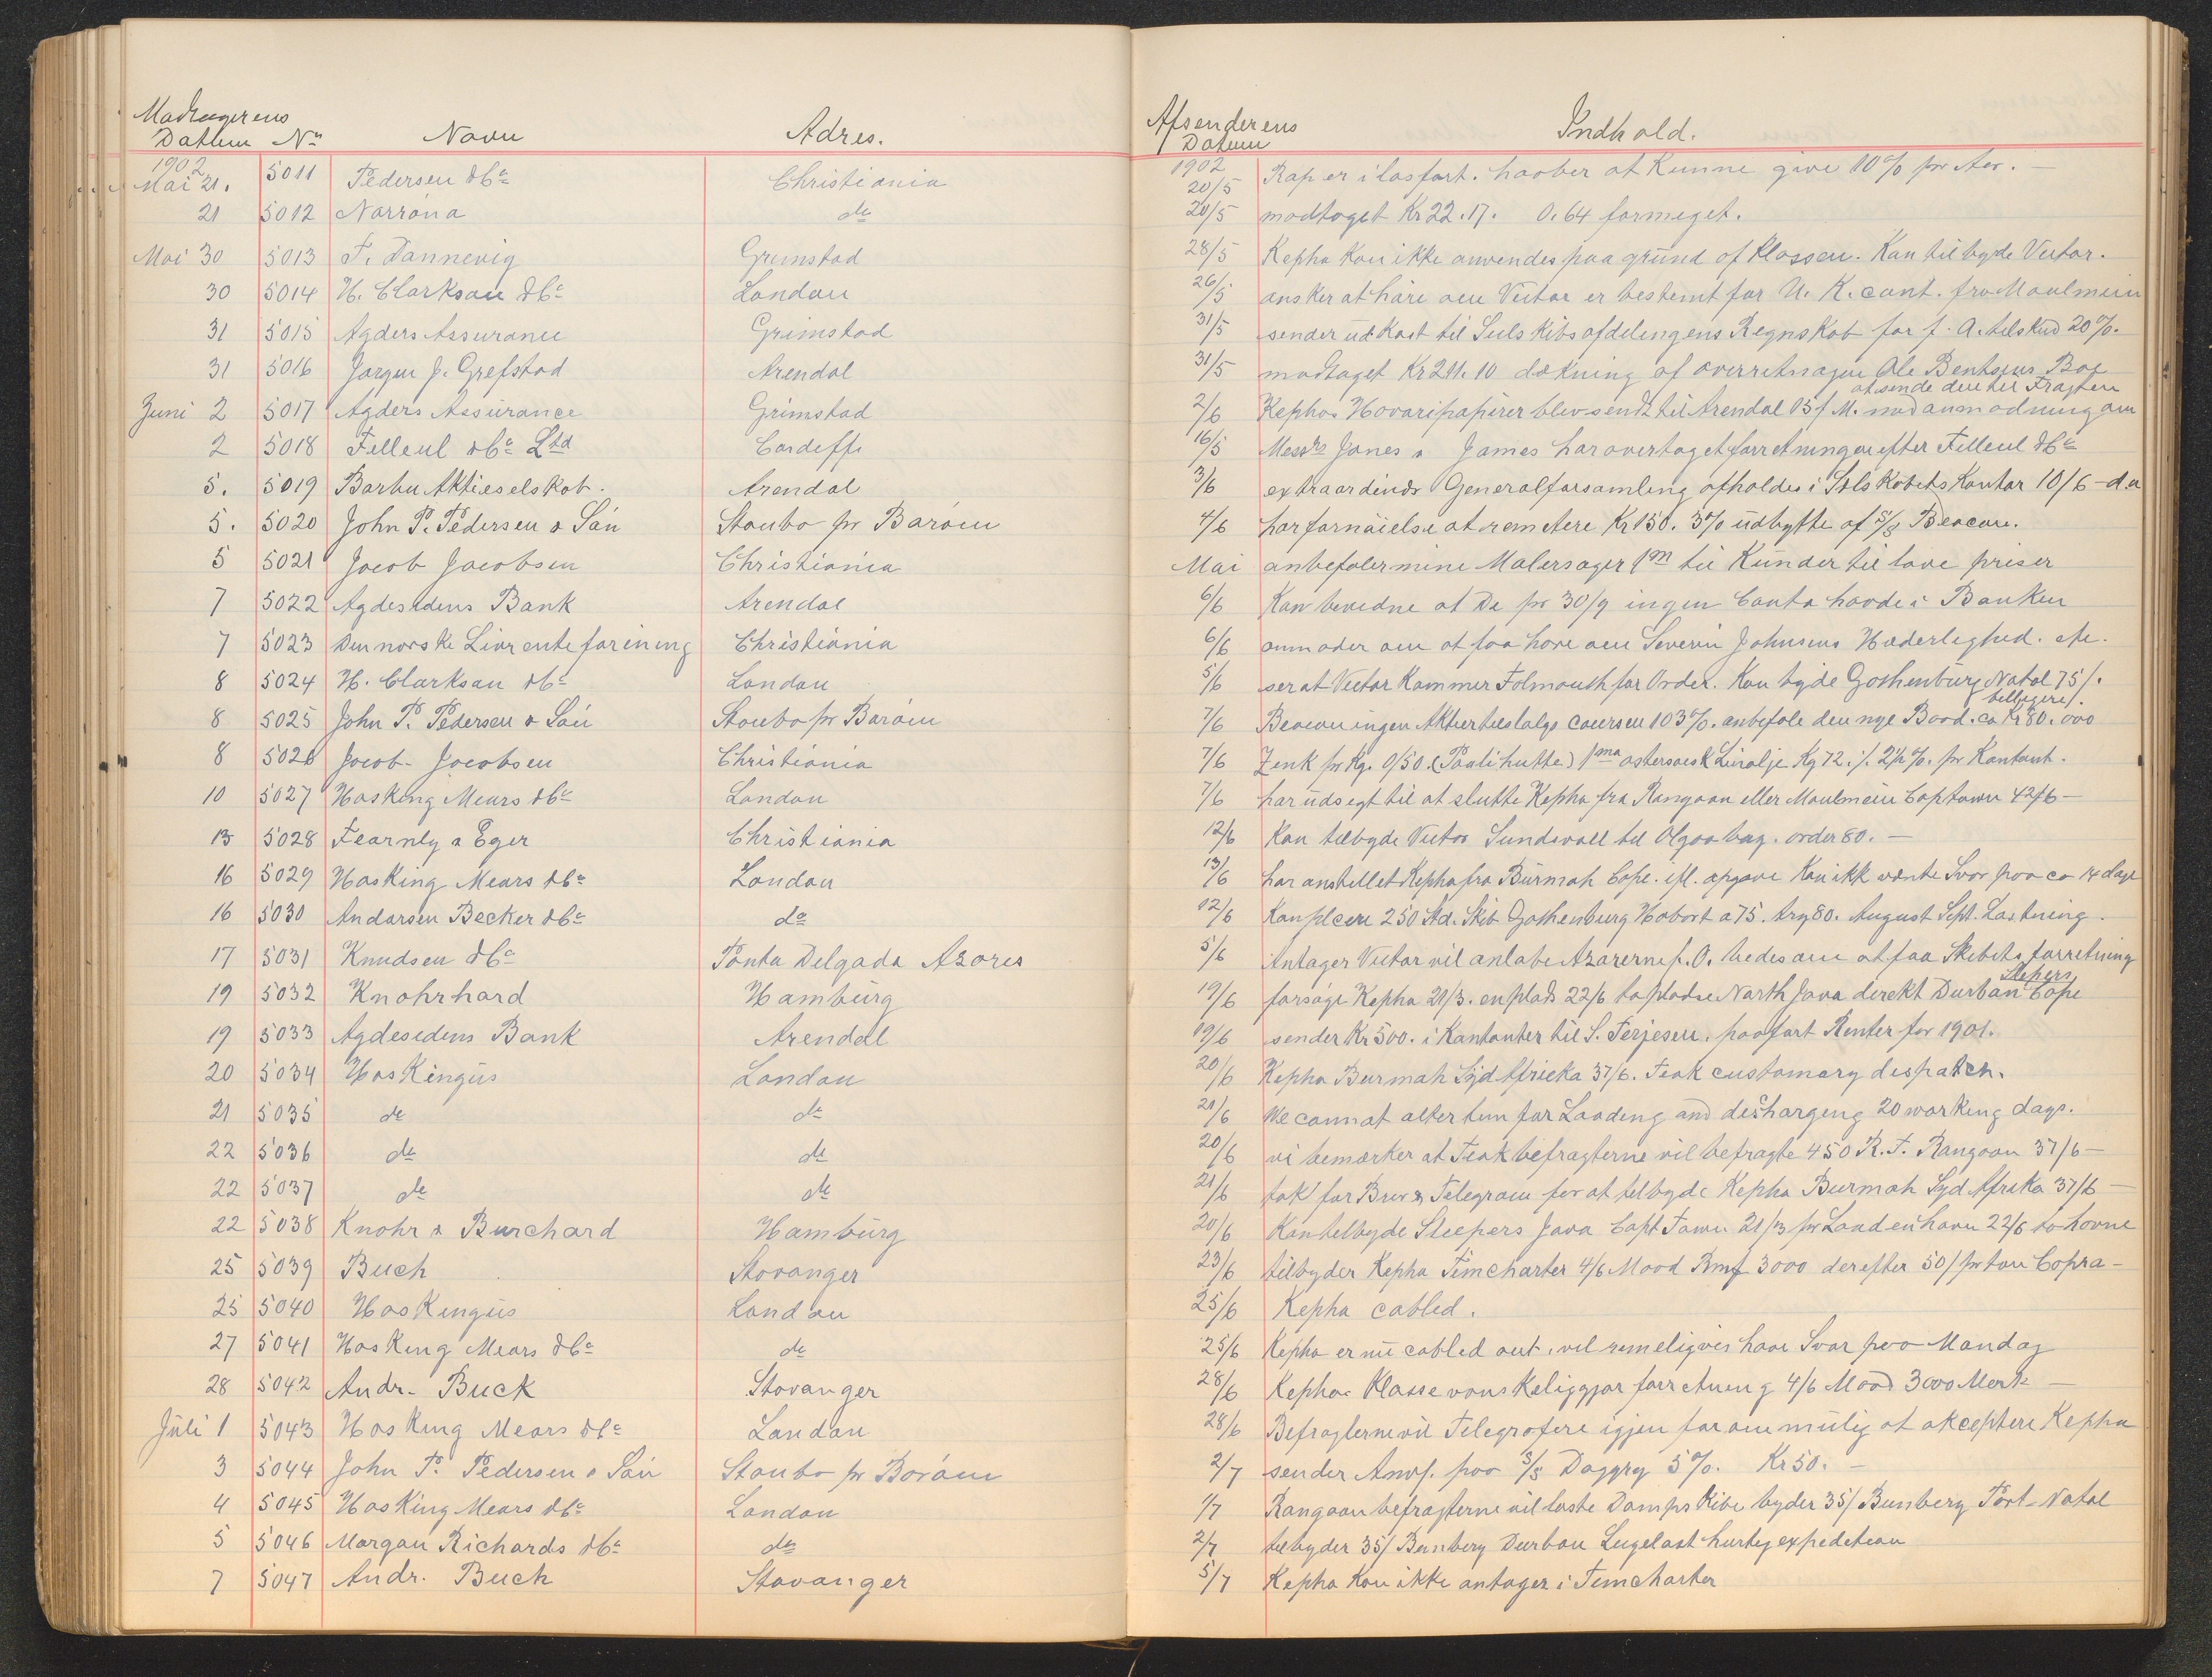 Modtagerens
Datum No Navn Adres.
Afsenderens
Datum Indhold.
1902 1902
Mai 21. 5011 Pedersen & Co Christiania 20/5 Rap er i losfart. haaber at Kunne give 10% pr Aar. —
21 5012 Norröna do 20/5 modtaget Kr 22.17. 0.64 formeget.
Mai 30 5013 T. Dannevig Grimstad 28/5 Kepha Kan ikke anvendes paa grund af Klassen. Kan tilbyde Victor.
30 5014 H. Clarkson & Co London 26/5 ønsker at høre om Victor er bestemt for U. K. cont. fra Moulmein
31 5015 Agders Assurance Grimstad 31/5 sender udkast til Seilskibsafdelingens Regnskab for f. A. tilskud 20%.
31 5016 Jørgen J. Grefstad Arendal 31/5 modtaget Kr 211.10 dækning af overretssagen Ole Bentsens Bog
at sende den til Fragten
Juni 2 5017 Agders Assurance Grimstad 2/6 Kephas Havaripapirer blev sendt til Arendal 15 f M. med anmodning om
2 5018 Filleul & Co Ltd Cardiff 16/5 Messrs Jones & James har overtaget forretningen efter Filleul & Co
5. 5019 Barbu Aktieselskab. Arendal 3/6 extraordinær Generalforsamling afholdes i Selskabets Kontor 10/6 - d.a
5. 5020 John P. Pedersen & Søn Staubo pr Borøen 4/6 har fornøielse at remitere Kr 150. 3% udbytte af S/S Beacon.
5 5021 Jacob Jacobsen Christiania Mai anbefaler mine Malersager 1m til Kunder til lave priser
7 5022 Agdesidens Bank Arendal 6/6 Kan bevidne at De pr 30/9 ingen Conto havde i Banken
7 5023 Den norske Livrenteforening Christiania 6/6 anmoder om at faa høre om Severin Johnsens Hæderlighed. etc.
8 5024 H. Clarkson & Co London 5/6 ser at Victor Kommer Falmouth for Order. Kan byde Gothenburg Natal 75/.
billigere/.
8 5025 John P. Pedersen & Søn Staubo pr Borøen 7/6 Beacon ingen Aktier tilsalgs coursen 103%. anbefale den nye Baad. ca Kr 80.000
8 5026 Jacob Jacobsen Christiania 7/6 Zink pr Kg. 0/50. (Paulihutte) 1ma ostersøisk Linolje Kg 72. ./. 2½%. pr Kontant.
10 5027 Hosking Mears & Co London 7/6 har udsigt til at slutte Kepha fra Rangoon eller Moulmein Captown 42/6 —
13 5028 Fearnly & Eger Christiania 12/6 Kan tilbyde Victor Sundsvall til Algoa bay. order 80. —
16 5029 Hosking Mears & Co London 13/6 har anstillet Kepha fra Burmah Cape. ifl. opgave Kan ikk vente Svar paa ca 14 dage
16 5030 Andersen Becker & Co do 12/6 Kan placere 250 Std. Skib Gothenburg Hobart a 75. try 80. August Sept. Lastning.
17 5031 Knudsen & Co Ponta Delgada Azores 5/6 Antager Victor vil anløbe Azorerne f. O. bedes om at faa Skibets forretning
Slepers
19 5032 Knohrhard Hamburg 19/6 forsøge Kepha 21/3. en plads 22/6 to pladse North Java direkt Durban Cape
19 5033 Agdesidens Bank Arendal 19/6 sender Kr 500. i Kontanter til S. Terjesen. paafört Renter for 1901.
20 5034 Hoskingus London 20/6 Kepha Burmah Syd Africka 37/6. Teak customary dispatch.
21 5035 do do 21/6 We cannot alter tim for Loading and discharging 20 working days.
22 5036 do do 20/6 vi bemærker at Teakbefragterne vil befragte 450 R. T. Rangoon 37/6 —
22 5037 do do 21/6 tak for Brev & Telegram for at tilbyde Kepha Burmah Syd Afrika 37/6 —
22 5038 Knohr & Burchard Hamburg 20/6 Kan tilbyde Sleepers Java Capt Town 21/3 pr Load en havn 22/6 to havne
25 5039 Buch Stavanger 23/6 tilbyder Kepha Timcharter 4/6 Maad Rmf 3000 derefter 50/ pr ton Copra —
25 5040 Hoskingus London 25/6 Kepha cabled.
27 5041 Hosking Mears & Co do 25/6 Kepha er nu cabled out, vil rimeligvis have Svar paa Mandag
28 5042 Andr. Buck Stavanger 28/6 Kephas Klasse vanskeliggjør forretning 4/6 Maad 3000 Mark —
Juli 1 5043 Hosking Mears & Co London 28/6 Befragterne vil Telegrafere igjen for om mulig at akceptere Kepha
3 5044 John P. Pedersen & Søn Staubo pr Borøen 2/7 sender Anvf. paa S/S Daggry 5%. Kr 50. —
4 5045 Hosking Mears & Co London 1/7 Rangoonbefragterne vil laste Dampskibe byder 35/ Bunbery Port-Natal
5 5046 Morgan Richards & Co do 2/7 tilbyder 35/ Bunbery Durban Lugelast hurtig expedition
7 5047 Andr. Buch Stavanger 5/7 Kepha Kan ikke antages i Timcharter